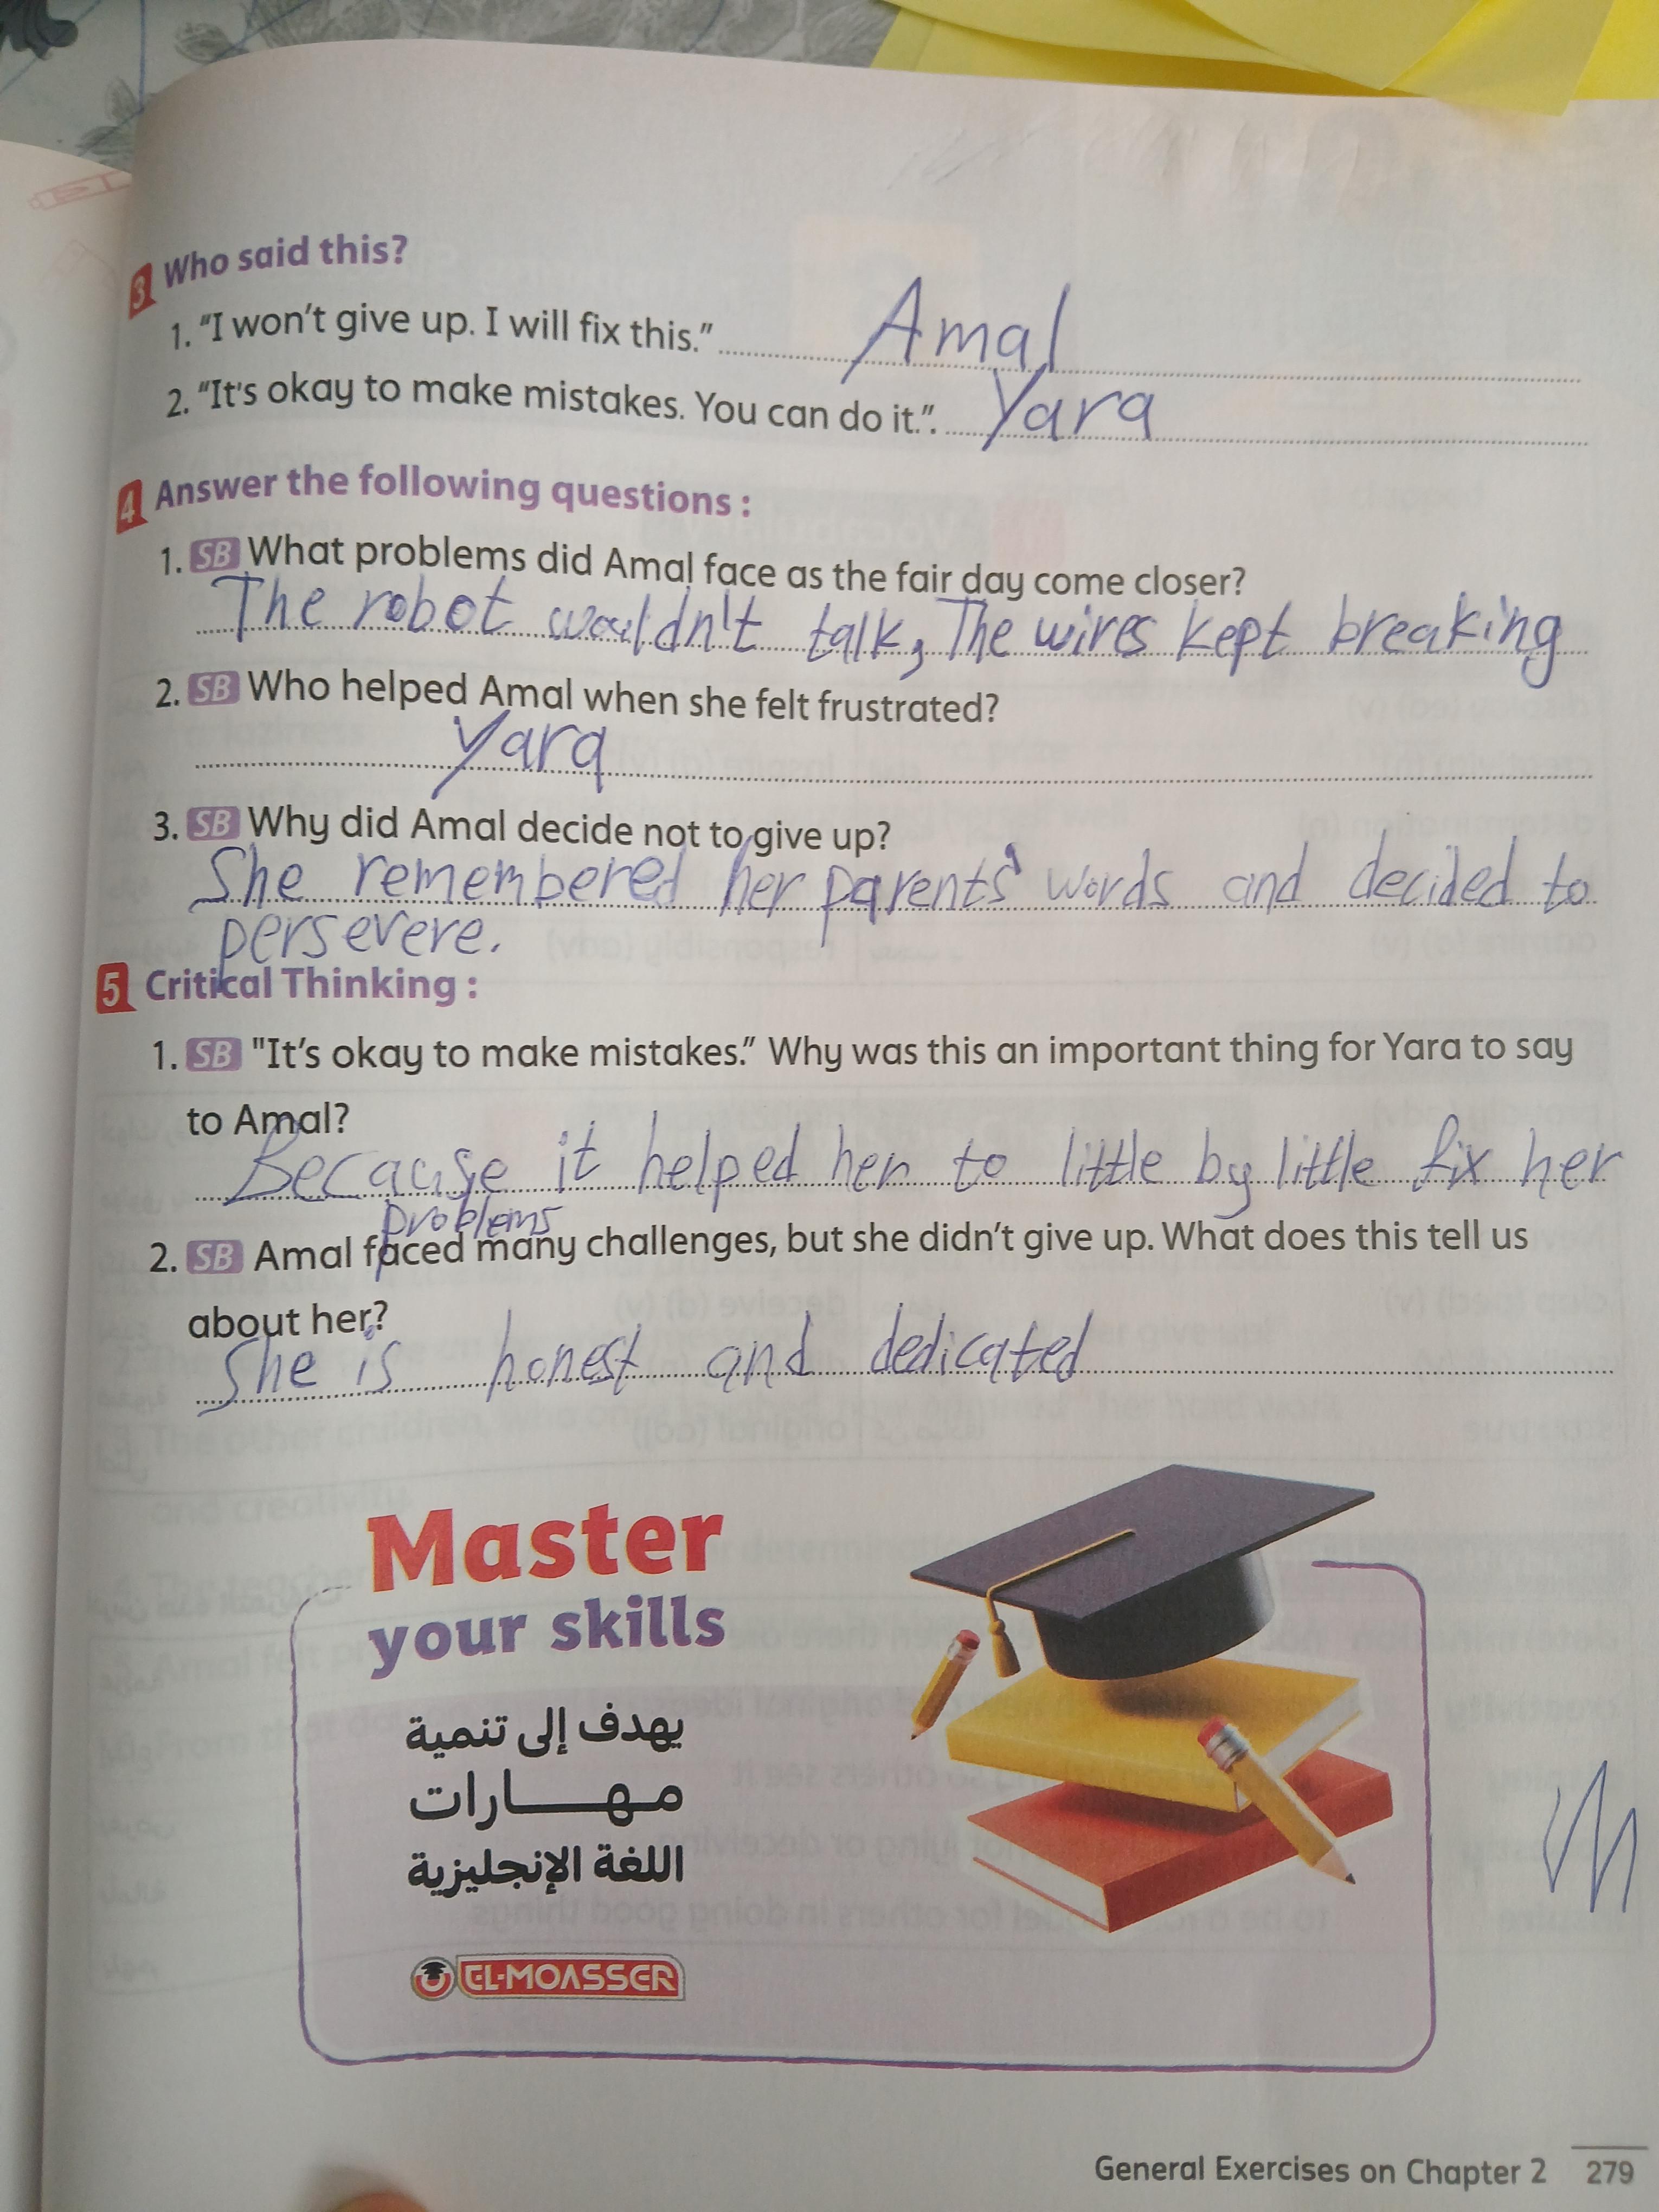 3 Who said this?
1. "I won't give up. I will fix this." Amal
2. "It's okay to make mistakes. You can do it.". Yara
4 Answer the following questions :
1. SB What problems did Amal face as the fair day come closer?
The robot wouldn't talk, The wires kept breaking
2. SB Who helped Amal when she felt frustrated?
Yara
3. SB Why did Amal decide not to give up?
She remembered her parents' words and decided to
persevere.
5 Critical Thinking :
1. SB "It's okay to make mistakes." Why was this an important thing for Yara to say
to Amal?
Because it helped her to little by little fix her
problems
2. SB Amal faced many challenges, but she didn't give up. What does this tell us
about her?
She is honest and dedicated
Master
your skills
يهدف إلى تنمية
مهـــارات
اللغة الإنجليزية
EL-MOASSER
General Exercises on Chapter 2 279